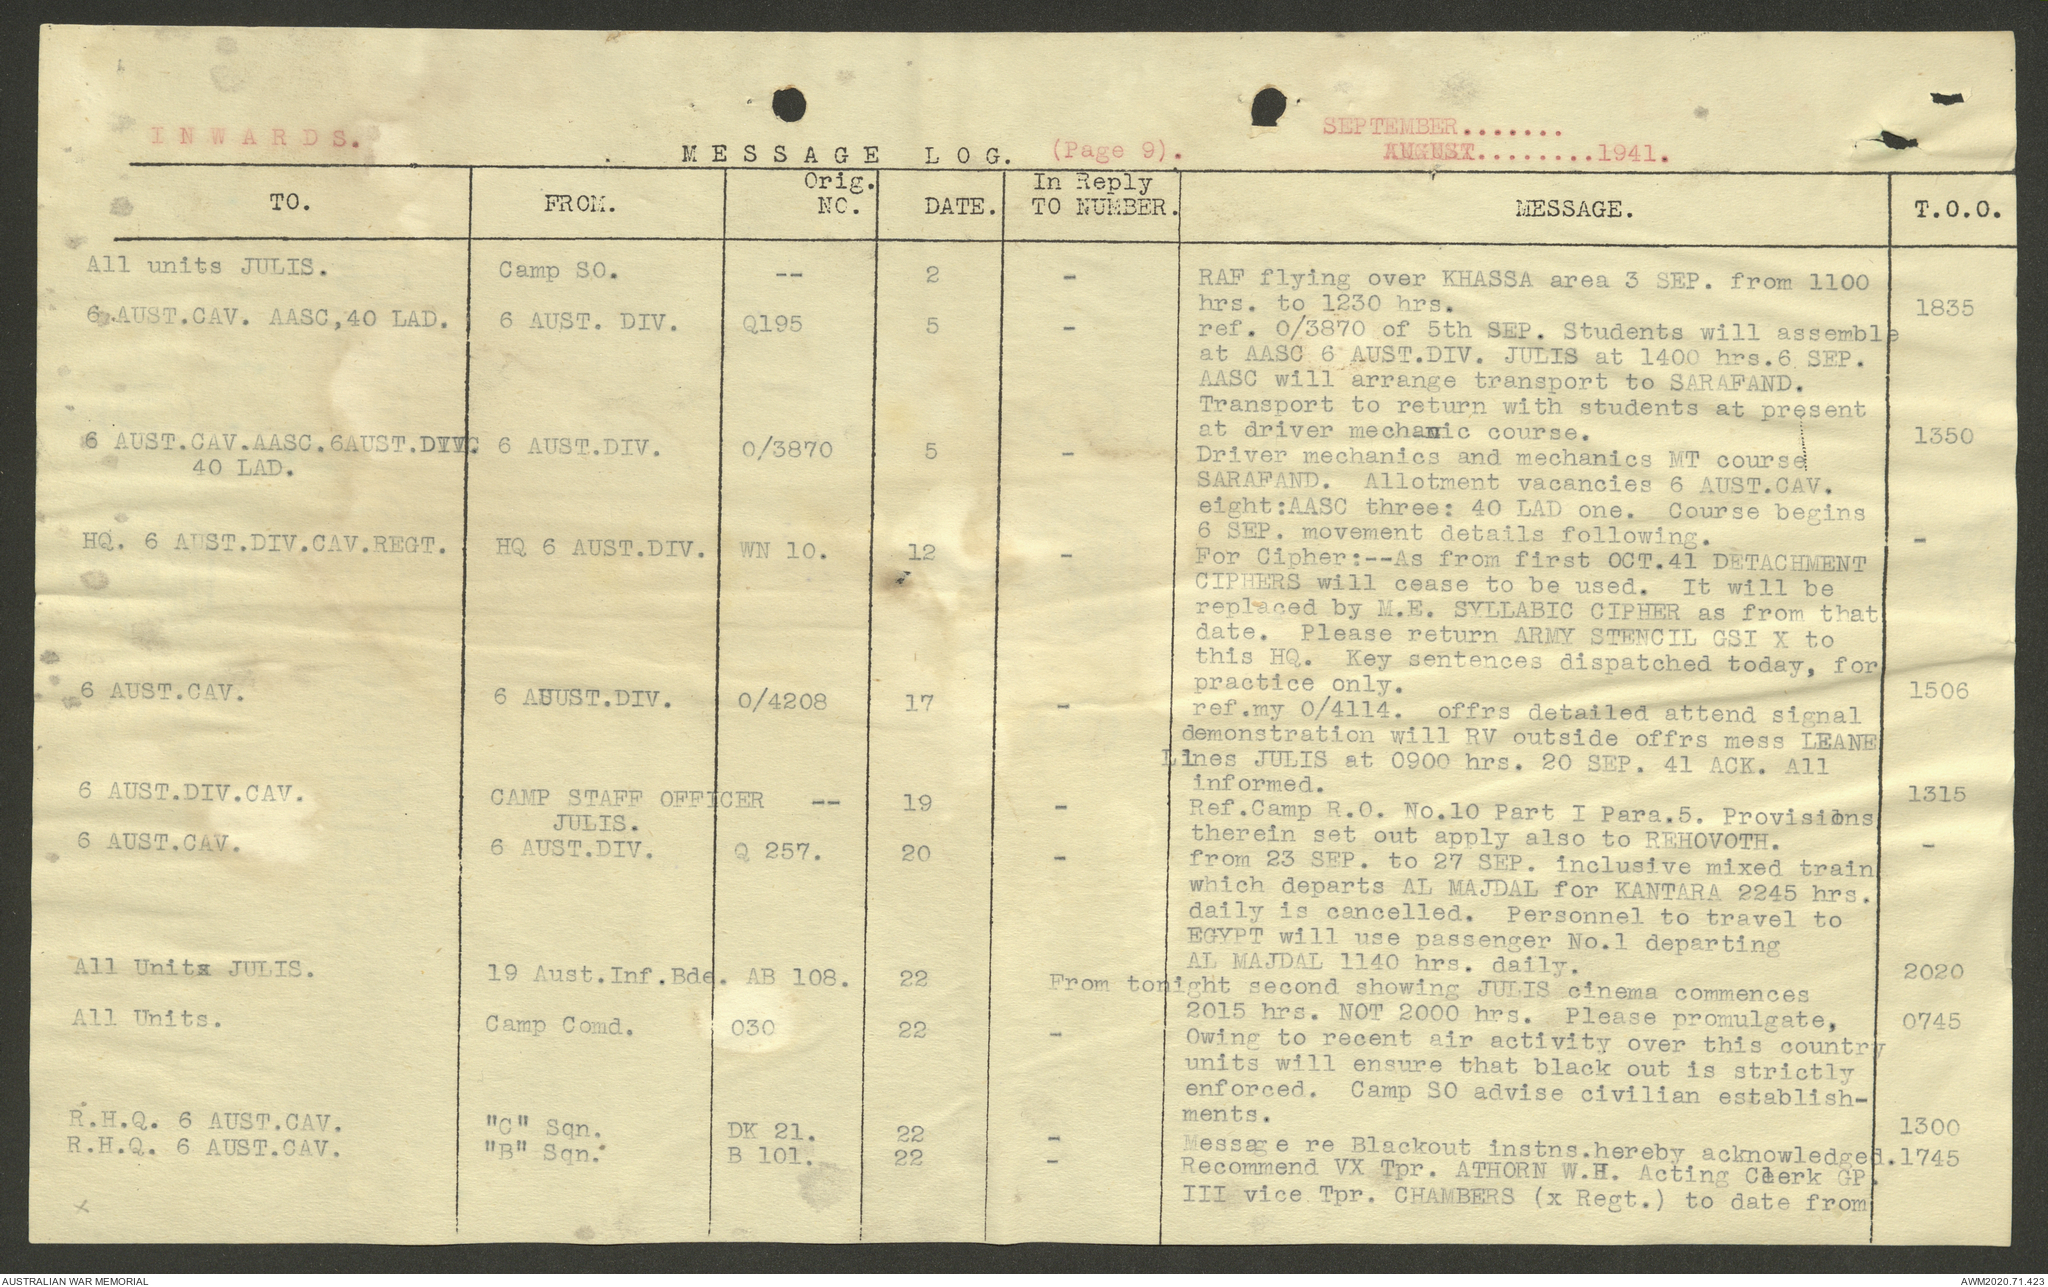 I N W A R D S.
SEPTEMBER.......
M E S S A G E  L O G. (Page 9). AUGUST.........1941.
TO. FROM. Orig. NO. DATE. In Reply TO NUMBER. MESSAGE. T.O.O.
All units JULIS. Camp SO. -- 2 - RAF flying over KHASSA area 3 SEP. from 1100
hrs. to 1230 hrs. 1835
6 AUST.CAV. AASC,40 LAD. 6 AUST. DIV. Q195 5 - ref. O/3870 of 5th SEP. Students will assemble
at AASC 6 AUST.DIV. JULIS at 1400 hrs.6 SEP.
AASC will arrange transport to SARAFAND.
Transport to return with students at present
at driver mechanic course. 1350
6 AUST.CAV.AASC.6AUST.DIV. 6 AUST.DIV. O/3870 5 - Driver mechanics and mechanics MT course
40 LAD. SARAFAND. Allotment vacancies 6 AUST.CAV.
eight:AASC three: 40 LAD one. Course begins
6 SEP. movement details following. -
HQ. 6 AUST.DIV.CAV.REGT. HQ 6 AUST.DIV. WN 10. 12 - For Cipher:--As from first OCT.41 DETACHMENT
CIPHERS will cease to be used. It will be
replaced by M.E. SYLLABIC CIPHER as from that
date. Please return ARMY STENCIL GSI X to
this HQ. Key sentences dispatched today, for
practice only. 1506
6 AUST.CAV. 6 AUUST.DIV. O/4208 17 - ref.my O/4114. offrs detailed attend signal
demonstration will RV outside offrs mess LEANE
Lines JULIS at 0900 hrs. 20 SEP. 41 ACK. All
informed. 1315
6 AUST.DIV.CAV. CAMP STAFF OFFICER JULIS. -- 19 - Ref.Camp R.O. No.10 Part I Para.5. Provisions
therein set out apply also to REHOVOTH. -
6 AUST.CAV. 6 AUST.DIV. Q 257. 20 - from 23 SEP. to 27 SEP. inclusive mixed train
which departs AL MAJDAL for KANTARA 2245 hrs.
daily is cancelled. Personnel to travel to
EGYPT will use passenger No.1 departing
AL MAJDAL 1140 hrs. daily. 2020
All Units JULIS. 19 Aust.Inf.Bde. AB 108. 22 From tonight second showing JULIS cinema commences
2015 hrs. NOT 2000 hrs. Please promulgate, 0745
All Units. Camp Comd. 030 22 - Owing to recent air activity over this country
units will ensure that black out is strictly
enforced. Camp SO advise civilian establish-
ments. 1300
R.H.Q. 6 AUST.CAV. "C" Sqn. DK 21. 22 - Message re Blackout instns.hereby acknowledged. 1745
R.H.Q. 6 AUST.CAV. "B" Sqn. B 101. 22 - Recommend VX Tpr. ATHORN W.H. Acting Clerk GP.
III vice Tpr. CHAMBERS (x Regt.) to date from
x
AUSTRALIAN WAR MEMORIAL
AWM2020.71.423